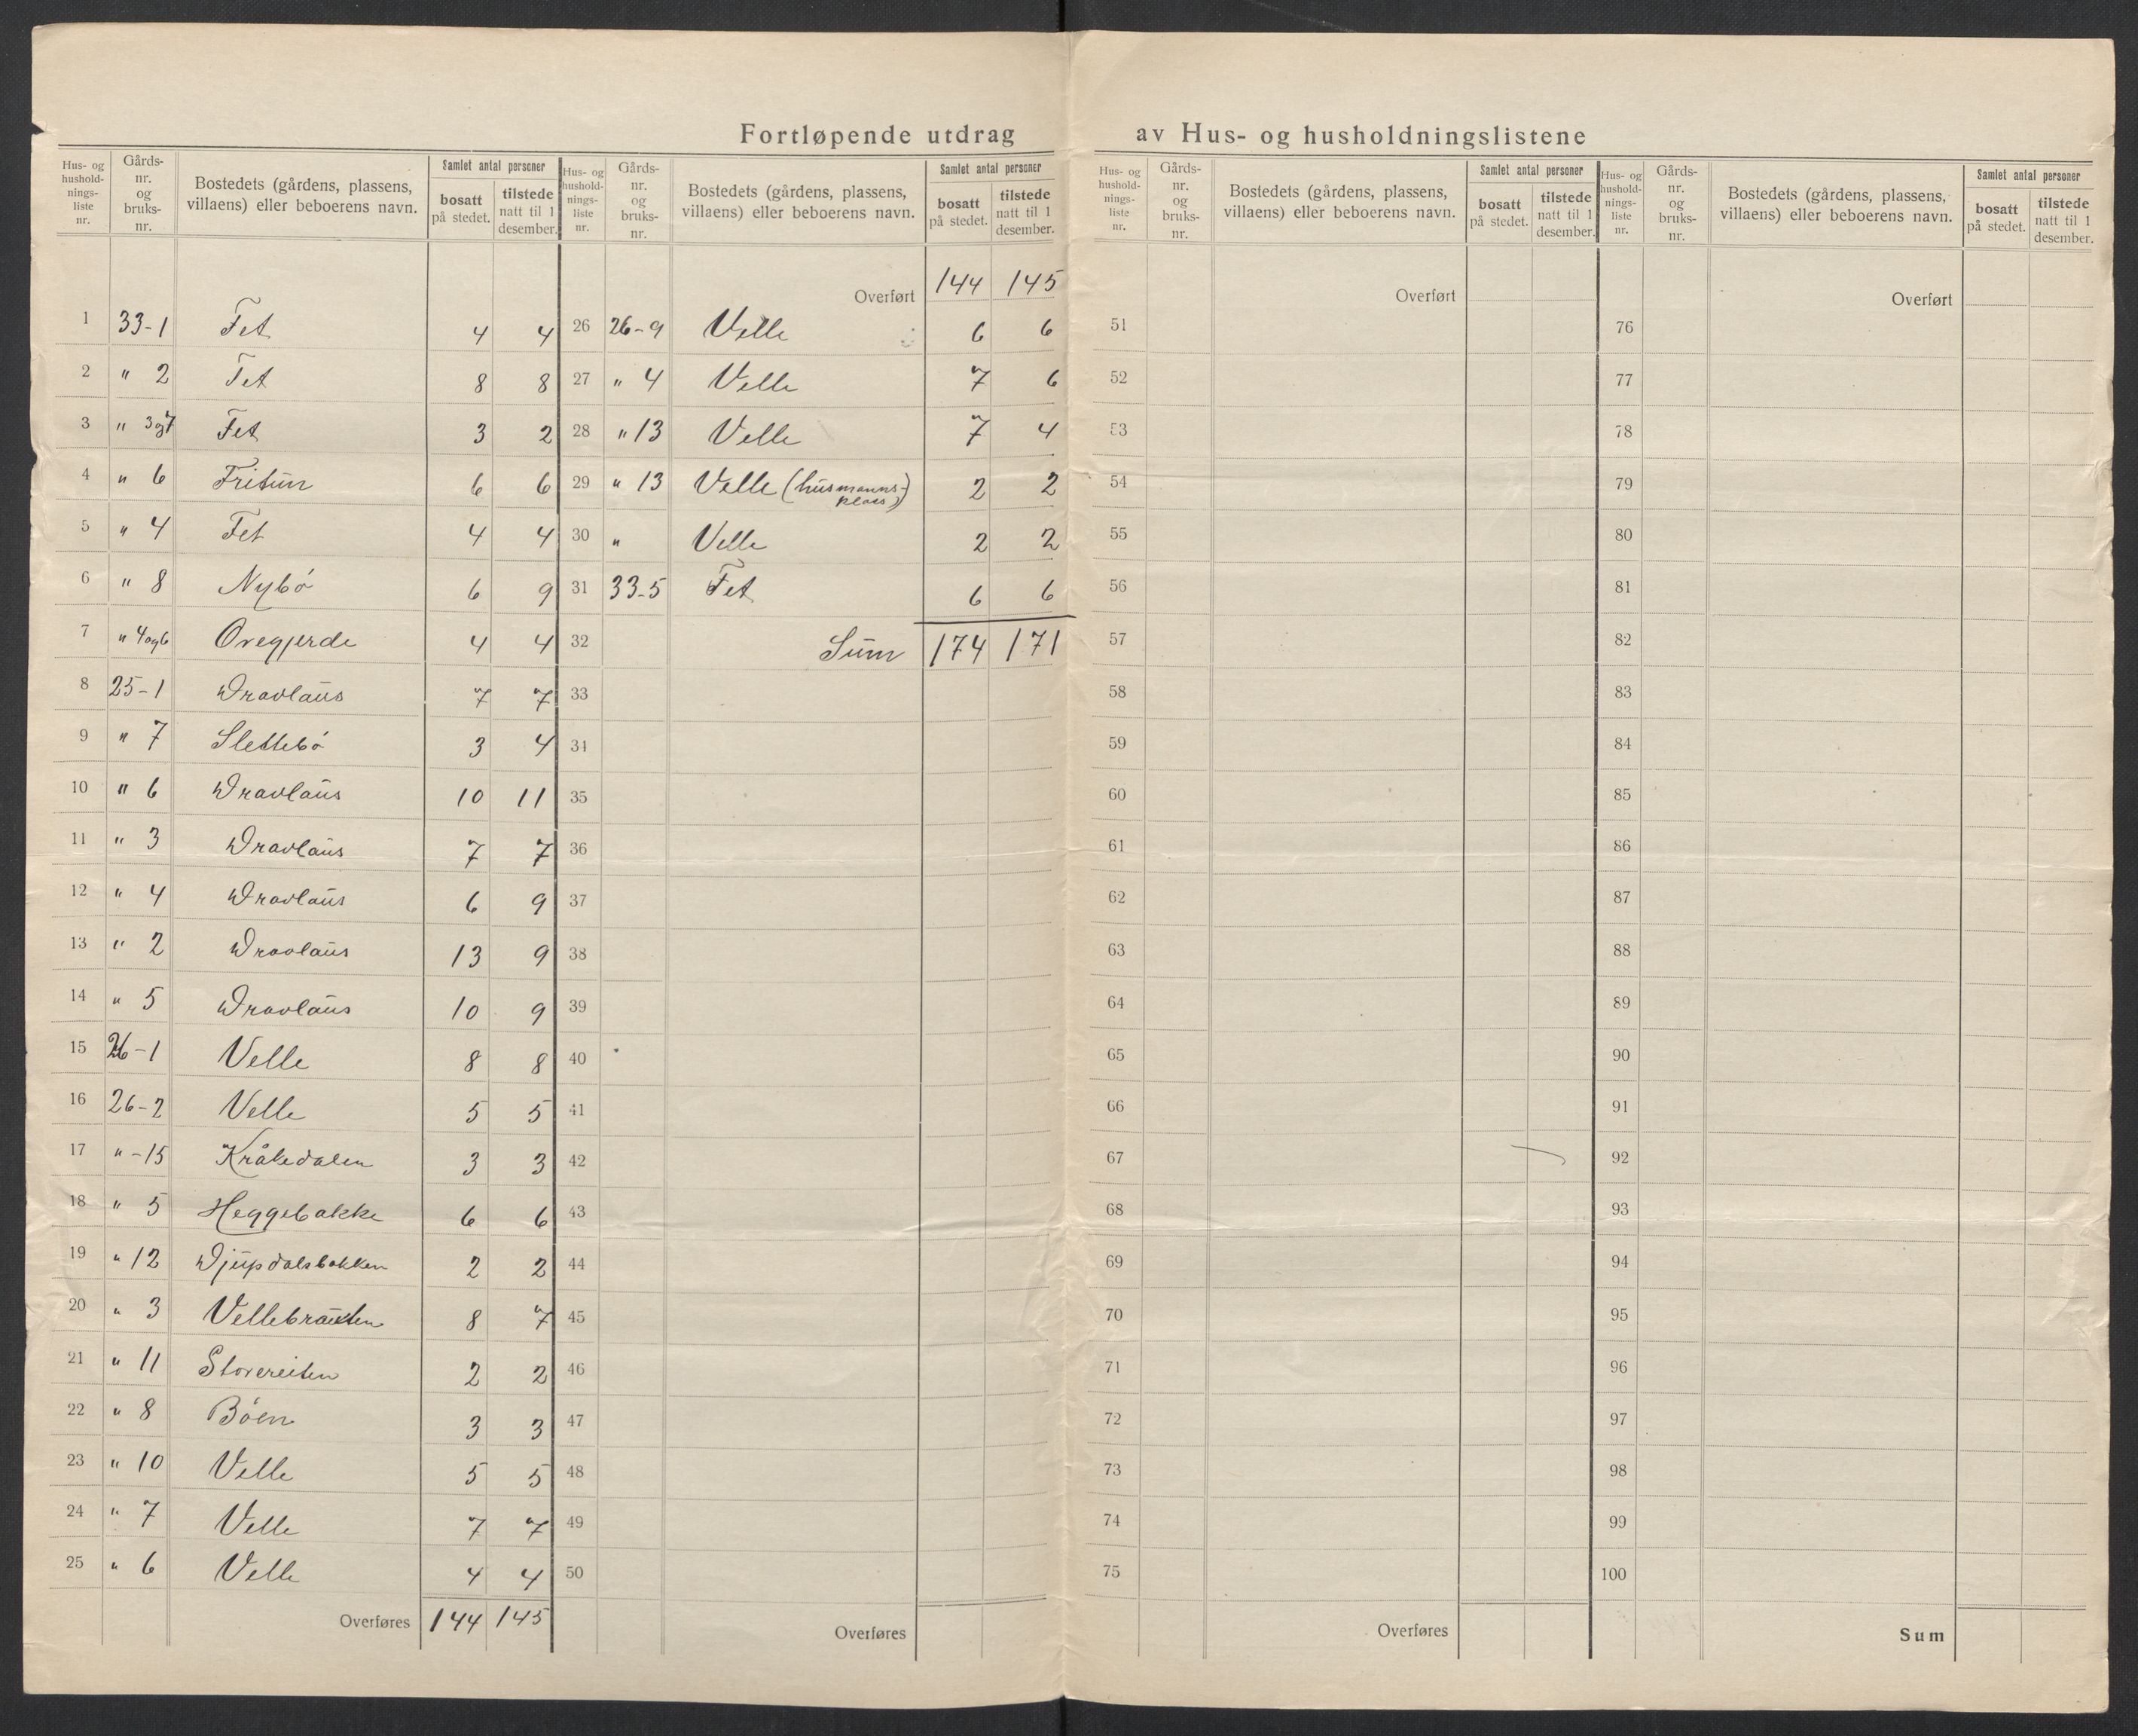 Fortløpende utdrag av Hus- og husholdningslistene
Hus- og husholdnings-liste nr. | Gårds-nr. og bruks-nr. | Bostedets (gårdens, plassens, villaens) eller beboerens navn. | Samlet antal personer | bosatt på stedet. | tilstede natt til 1 desember.
1 33-1 Fet 4 4
2 " 2 Fet 8 8
3 " 3og7 Fet 3 2
4 " 6 Fritun 6 6
5 " 4 Fet 4 4
6 " 8 Nybö 6 9
7 " 4og6 Övegjerde 4 4
8 25-1 Dravlaus 7 7
9 " 7 Slettebö 3 4
10 " 6 Dravlaus 10 11
11 " 3 Dravlaus 7 7
12 " 4 Dravlaus 6 9
13 " 2 Dravlaus 13 9
14 " 5 Dravlaus 10 9
15 26-1 Velle 8 8
16 26-2 Velle 5 5
17 " -15 Kråkedalen 3 3
18 " 5 Heggebakke 6 6
19 " 12 Djupdalsbakken 2 2
20 " 3 Vellebrauten 8 7
21 " 11 Storereiten 2 2
22 " 8 Böen 3 3
23 " 10 Velle 5 5
24 " 7 Velle 7 7
25 " 6 Velle 4 4
Overføres 144 145
Hus- og husholdnings-liste nr. | Gårds-nr. og bruks-nr. | Bostedets (gårdens, plassens, villaens) eller beboerens navn. | Samlet antal personer | bosatt på stedet. | tilstede natt til 1 desember.
Overført 144 145
26 26-9 Velle 6 6
27 " 4 Velle 7 6
28 " 13 Velle 7 4
29 " 13 Velle (husmanns-plass) 2 2
30 " Velle 2 2
31 33-5 Fet 6 6
32 Sum 174 171
33
34
35
36
37
38
39
40
41
42
43
44
45
46
47
48
49
50
Overføres
Hus- og husholdnings-liste nr. | Gårds-nr. og bruks-nr. | Bostedets (gårdens, plassens, villaens) eller beboerens navn. | Samlet antal personer | bosatt på stedet. | tilstede natt til 1 desember.
Overført
51
52
53
54
55
56
57
58
59
60
61
62
63
64
65
66
67
68
69
70
71
72
73
74
75
Overføres
Hus- og husholdnings-liste nr. | Gårds-nr. og bruks-nr. | Bostedets (gårdens, plassens, villaens) eller beboerens navn. | Samlet antal personer | bosatt på stedet. | tilstede natt til 1 desember.
Overført
76
77
78
79
80
81
82
83
84
85
86
87
88
89
90
91
92
93
94
95
96
97
98
99
100
Sum